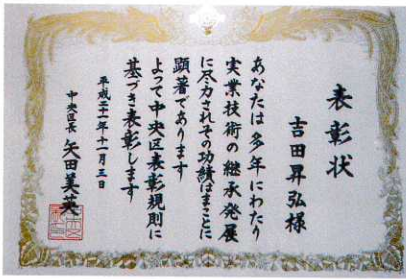 表彰状
吉田昇弘様
あなたは多年にわたり
実業技術の継承発展
に尽力されその功績はまことに
顕著であります
よって中央区表彰規則に
基づき表彰します
平成二十一年十一月三日
中央区長 矢田美英